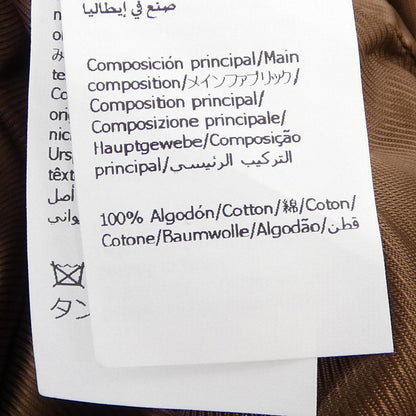 صنع في إيطاليا
Composición principal/Main
composition/メインファブリック/
Composition principal/
Composizione principale/
Hauptgewebe/Composição
principal/التركيب الرئيسي
100% Algodón/Cotton/綿/Coton/
Cotone/Baumwolle/Algodão/قطن
タン